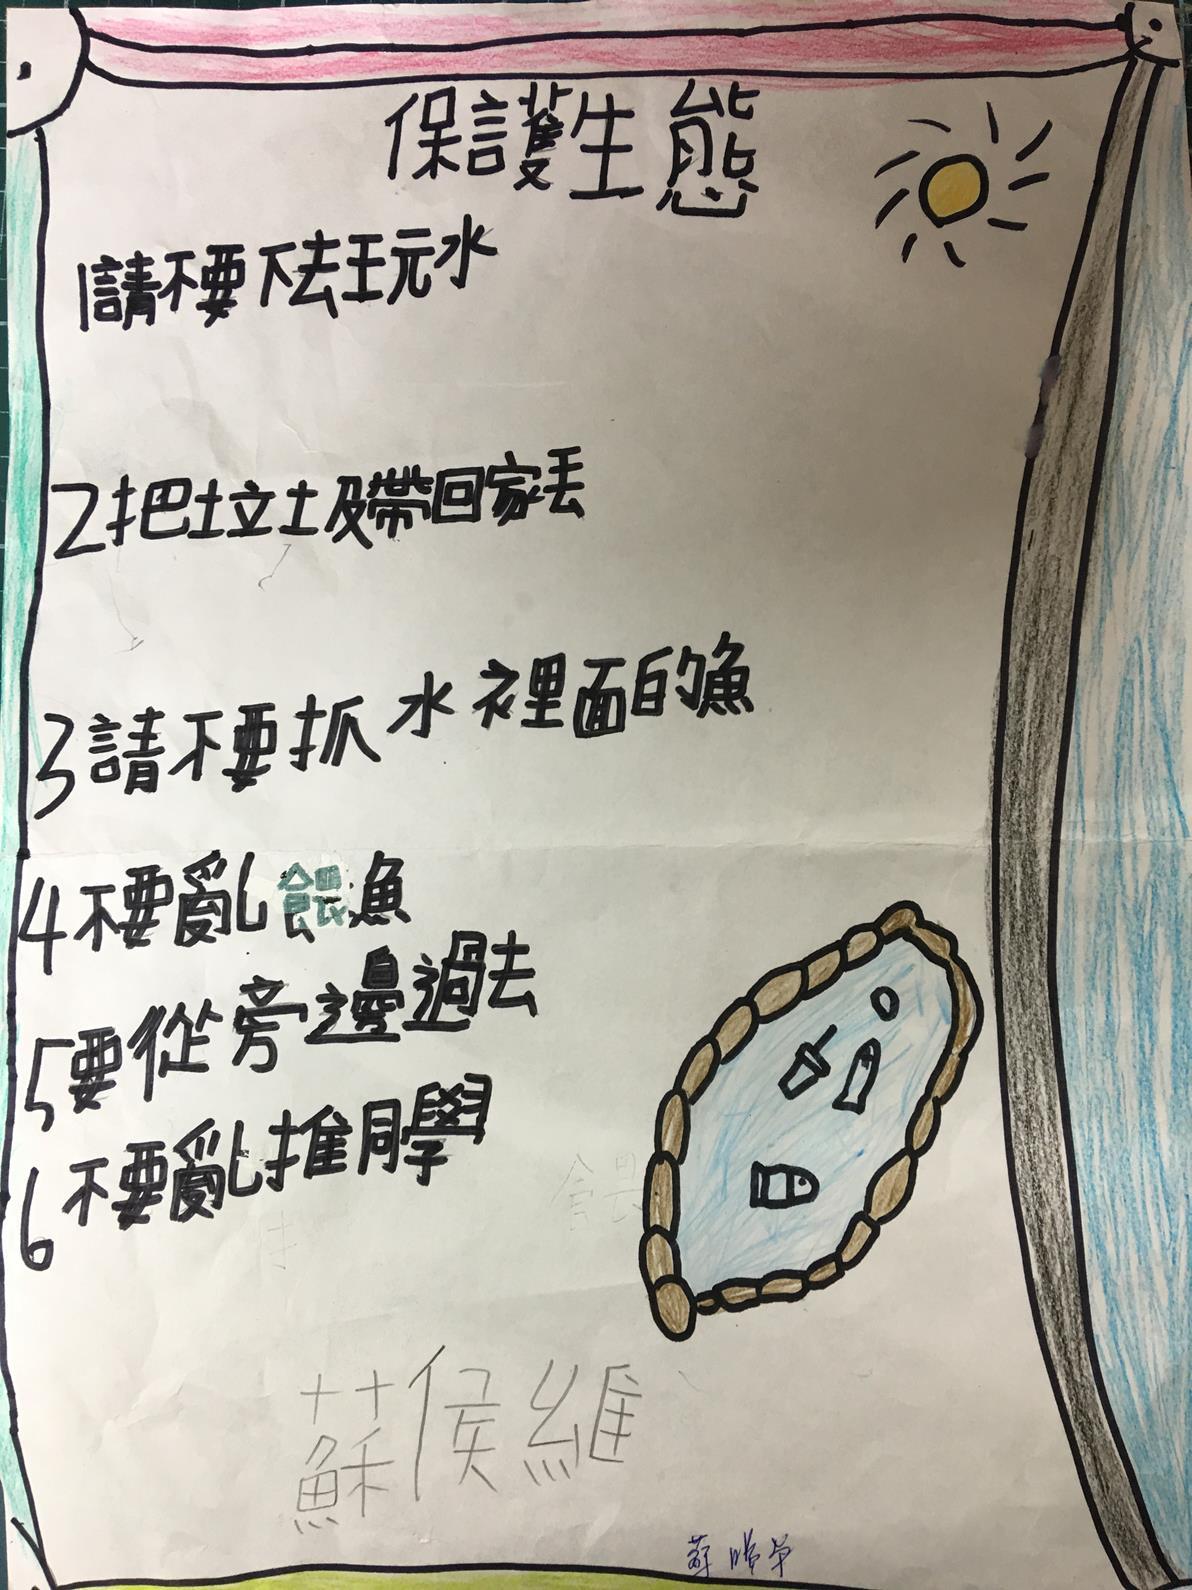 保護生態
1請不要下去玩水
2把垃圾帶回家丟
3請不要抓水裡面的魚
4不要亂餵魚
5要從旁邊過去
6不要亂推同學
餵
蘇侯維